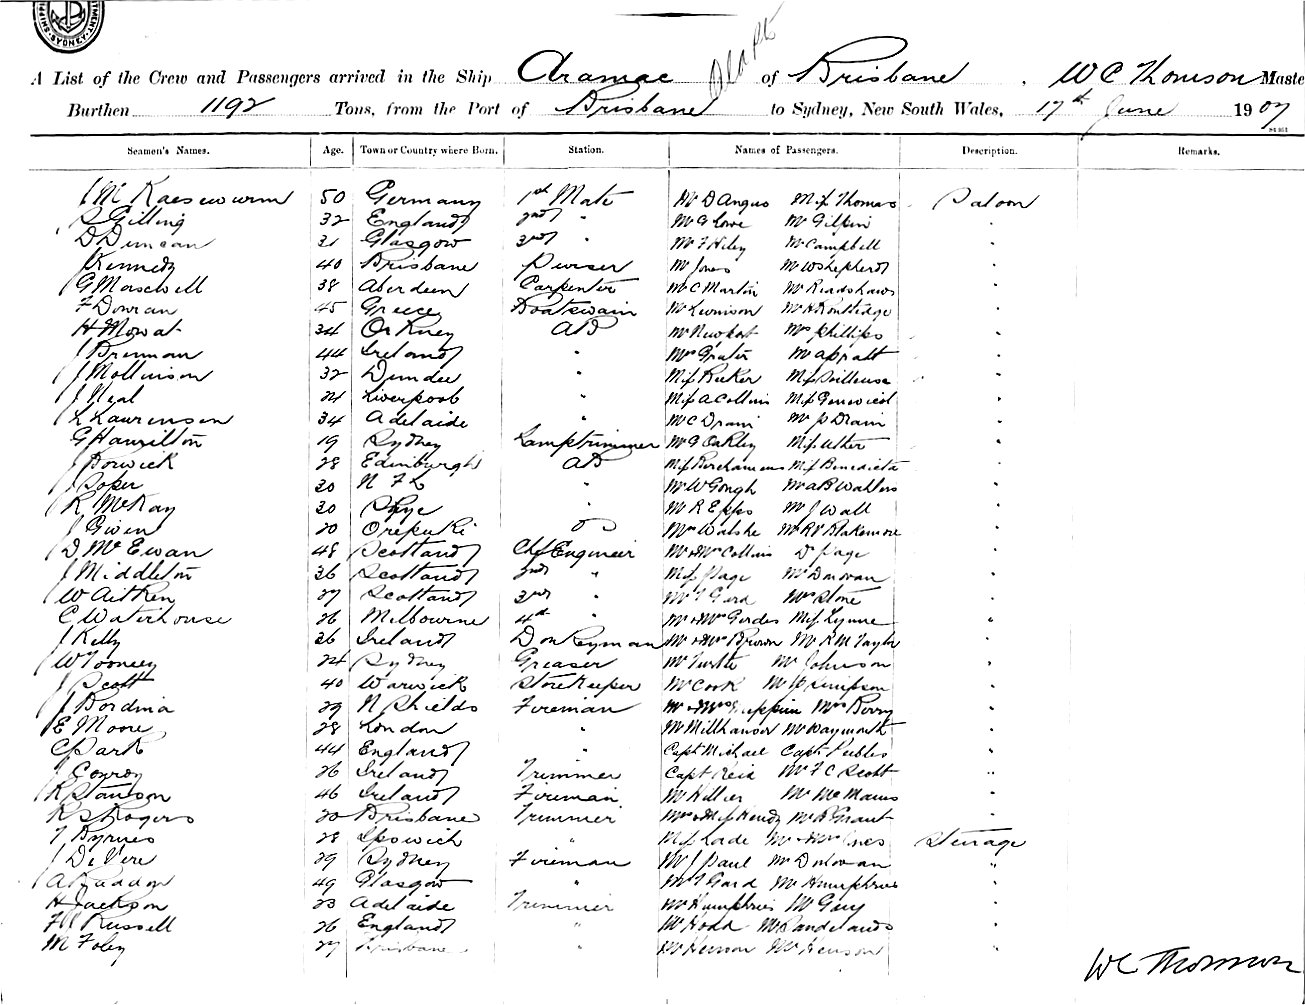 A List of the Crew and Passengers arrived in the Ship Aramac of Brisbane, W C Thomson Master
Burthen 1192 Tons, from the Port of Brisbane to Sydney, New South Wales, 17th June 1907
Seamen's Names. Age. Town or Country where Born. Station. Names of Passengers. Description. Remarks.
J M Kaesewurm 50 Germany 1st Mate Mr D Angus Miss Thomas Saloon
S Gilling 32 England 2nd " Mr G Lowe Mr Gilpin "
D Duncan 31 Glasgow 3rd " Mr F Hiley Mr Campbell "
J Kennedy 40 Brisbane Purser Mr Jones Mr W Shepherd "
G Maxwell 38 Aberdeen Carpenter Mr C Martin Mr Readshaw "
F Dowran 45 Greece Boatswain Mr Lewison Mr H Routledge "
H Mowat 34 Orkney AB Mr Newport Mrs Phillips "
J Brennan 44 Ireland " Mr Grater Mr A Pratt "
J Mollinson 32 Dundee " Miss Reeker Miss "
J Neal 24 Liverpool " Miss A Collins Miss "
L Laurenson 34 Adelaide " Mr C Drain Mr P Drain "
G Hamilton 19 Sydney Lamptrimmer Mr G Oakley Miss Uther "
J Borwick 28 Edinburgh AB Miss Miss Benedicta "
J Soper 30 N F L " Mr W Gough Mr A B Walters "
R McKay 30 Skye " Mr R Epps Mr J Wall "
J Given 20 Orepuki OS Mrs Walshe Mr R V Blakemore "
D McEwan 48 Scotland Chf Engineer Mr & Mrs Collins Dr Page "
J Middleton 36 Scotland 2nd " Miss Page Mr Donovan "
W Aitken 27 Scotland 3rd " Mr T Gard Mrs Stone "
C Waterhouse 26 Melbourne 4th " Mr & Mrs Gerdes Miss Lynne "
J Kelly 36 Ireland Donkeyman Mr & Mrs Brown Mr R M Taylor "
W Toomey 24 Sydney Greaser Mr Turtle Mr Johnson "
J Scott 40 Warwick Storekeeper Mr Cook Mr Simpson "
J Bordina 29 N Shields Fireman Mr & Mrs Mrs Berry "
E Moore 28 London " Mr Millhauser Mr Waymouth "
C Park 44 England " Capt Michael Capt Peebles "
J Conroy 26 Ireland Trimmer Capt Reid Mr F C Scott "
R Stanson 46 Ireland Fireman Mr Hillier Mr McManus "
R S Rogers 20 Brisbane Trimmer Mrs & Miss Hendy Mr R Grant "
T Byrnes 28 Ipswich " Miss Lade Mr & Mrs Steerage
J DeVere 29 Sydney Fireman Mr J Paul Mr Donovan "
A Raddon 49 Glasgow " Mr T Gard Mr Humphries "
H Jackson 23 Adelaide Trimmer Mr Humphries Mr Guy "
F W Russell 26 England " Mr Hodd Mr Sandelands "
M Foley 27 Brisbane " Mr Henson "
W C Thomson